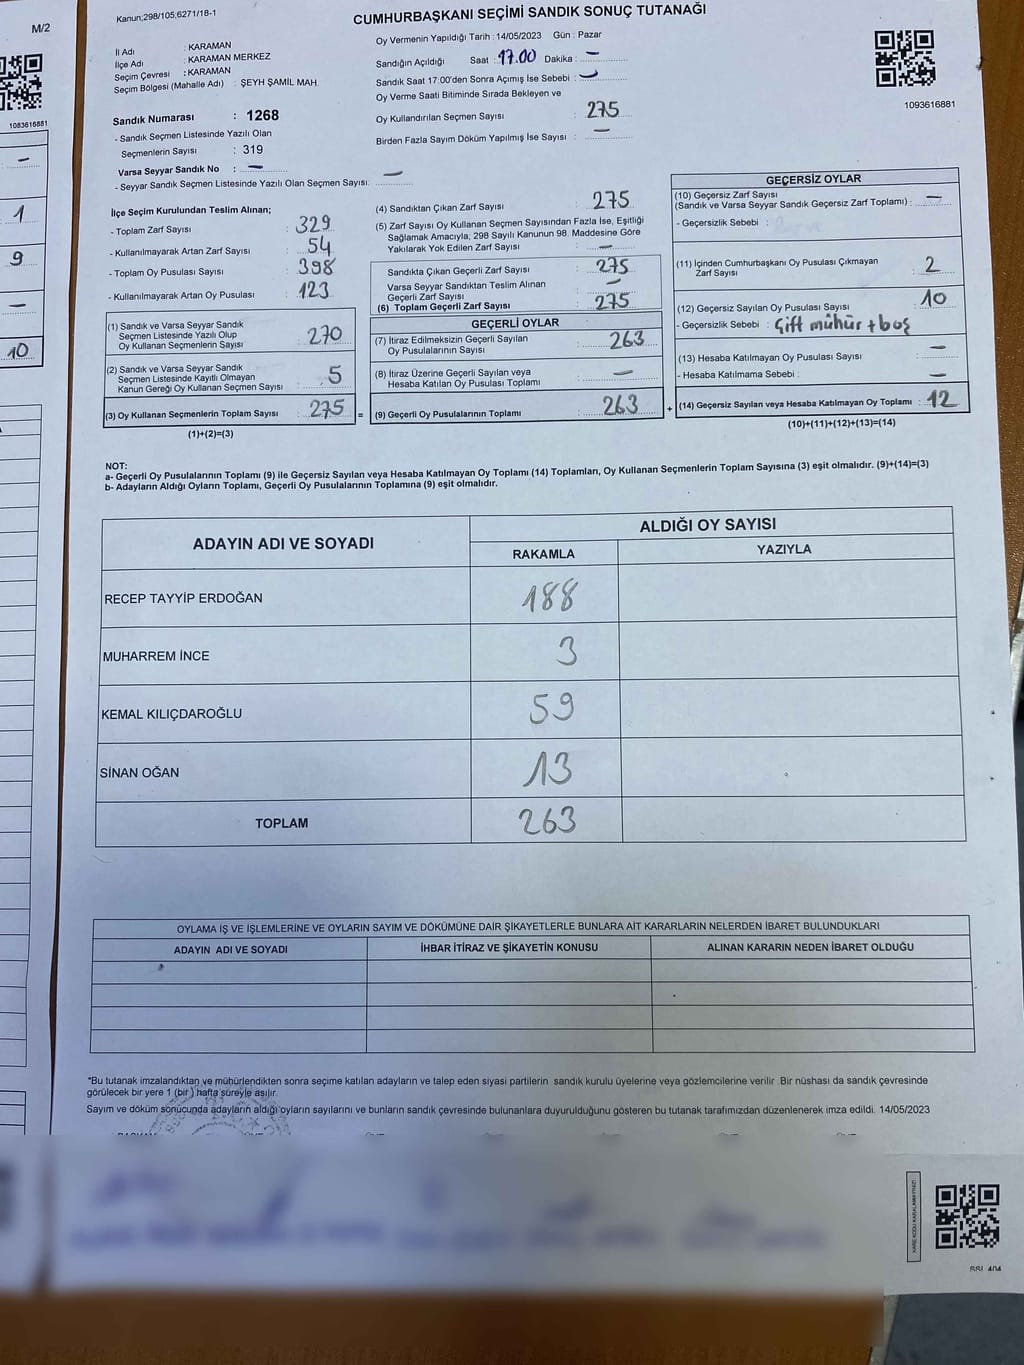 M/2
1083616881
–
1
9
–
10
Kanun;298/105;6271/18-1
CUMHURBAŞKANI SEÇİMİ SANDIK SONUÇ TUTANAĞI
İl Adı : KARAMAN
İlçe Adı : KARAMAN MERKEZ
Seçim Çevresi : KARAMAN
Seçim Bölgesi (Mahalle Adı) : ŞEYH ŞAMİL MAH.
Sandık Numarası : 1268
- Sandık Seçmen Listesinde Yazılı Olan
Seçmenlerin Sayısı : 319
Varsa Seyyar Sandık No : –
- Seyyar Sandık Seçmen Listesinde Yazılı Olan Seçmen Sayısı: –
Oy Vermenin Yapıldığı Tarih : 14/05/2023 Gün : Pazar
Sandığın Açıldığı Saat : 17.00 Dakika : –
Sandık Saat 17:00'den Sonra Açımış İse Sebebi : –
Oy Verme Saati Bitiminde Sırada Bekleyen ve
Oy Kullandırılan Seçmen Sayısı : 275
Birden Fazla Sayım Döküm Yapılmış İse Sayısı : –
1093616881
İlçe Seçim Kurulundan Teslim Alınan;
- Toplam Zarf Sayısı : 329
- Kullanılmayarak Artan Zarf Sayısı : 54
- Toplam Oy Pusulası Sayısı : 398
- Kullanılmayarak Artan Oy Pusulası : 123
(1) Sandık ve Varsa Seyyar Sandık
Seçmen Listesinde Yazılı Olup
Oy Kullanan Seçmenlerin Sayısı : 270
(2) Sandık ve Varsa Seyyar Sandık
Seçmen Listesinde Kayıtlı Olmayan
Kanun Gereği Oy Kullanan Seçmen Sayısı : 5
(3) Oy Kullanan Seçmenlerin Toplam Sayısı : 275 =
(1)+(2)=(3)
(4) Sandıktan Çıkan Zarf Sayısı : 275
(5) Zarf Sayısı Oy Kullanan Seçmen Sayısından Fazla İse, Eşitliği
Sağlamak Amacıyla, 298 Sayılı Kanunun 98. Maddesine Göre
Yakılarak Yok Edilen Zarf Sayısı : –
Sandıkta Çıkan Geçerli Zarf Sayısı : 275
Varsa Seyyar Sandıktan Teslim Alınan
Geçerli Zarf Sayısı : –
(6) Toplam Geçerli Zarf Sayısı : 275
GEÇERLİ OYLAR
(7) İtiraz Edilmeksizin Geçerli Sayılan
Oy Pusulalarının Sayısı : 263
(8) İtiraz Üzerine Geçerli Sayılan veya
Hesaba Katılan Oy Pusulası Toplamı : –
(9) Geçerli Oy Pusulalarının Toplamı : 263 +
GEÇERSİZ OYLAR
(10) Geçersiz Zarf Sayısı
(Sandık ve Varsa Seyyar Sandık Geçersiz Zarf Toplamı) : –
- Geçersizlik Sebebi :
(11) İçinden Cumhurbaşkanı Oy Pusulası Çıkmayan
Zarf Sayısı : 2
(12) Geçersiz Sayılan Oy Pusulası Sayısı : 10
- Geçersizlik Sebebi : Çift mühür + boş
(13) Hesaba Katılmayan Oy Pusulası Sayısı : –
- Hesaba Katılmama Sebebi : –
(14) Geçersiz Sayılan veya Hesaba Katılmayan Oy Toplamı : 12
(10)+(11)+(12)+(13)=(14)
NOT:
a- Geçerli Oy Pusulalarının Toplamı (9) ile Geçersiz Sayılan veya Hesaba Katılmayan Oy Toplamı (14) Toplamları, Oy Kullanan Seçmenlerin Toplam Sayısına (3) eşit olmalıdır. (9)+(14)=(3)
b- Adayların Aldığı Oyların Toplamı, Geçerli Oy Pusulalarının Toplamına (9) eşit olmalıdır.
ADAYIN ADI VE SOYADI
ALDIĞI OY SAYISI
RAKAMLA YAZIYLA
RECEP TAYYİP ERDOĞAN 188
MUHARREM İNCE 3
KEMAL KILIÇDAROĞLU 59
SİNAN OĞAN 13
TOPLAM 263
OYLAMA İŞ VE İŞLEMLERİNE VE OYLARIN SAYIM VE DÖKÜMÜNE DAİR ŞİKAYETLERLE BUNLARA AİT KARARLARIN NELERDEN İBARET BULUNDUKLARI
ADAYIN ADI VE SOYADI İHBAR İTİRAZ VE ŞİKAYETİN KONUSU ALINAN KARARIN NEDEN İBARET OLDUĞU
*Bu tutanak imzalandıktan ve mühürlendikten sonra seçime katılan adayların ve talep eden siyasi partilerin sandık kurulu üyelerine veya gözlemcilerine verilir .Bir nüshası da sandık çevresinde
görülecek bir yere 1 (bir ) hafta süreyle asılır.
Sayım ve döküm sonucunda adayların aldığı oyların sayılarını ve bunların sandık çevresinde bulunanlara duyurulduğunu gösteren bu tutanak tarafımızdan düzenlenerek imza edildi. 14/05/2023
KARE KODU KARALAMAYINIZ!